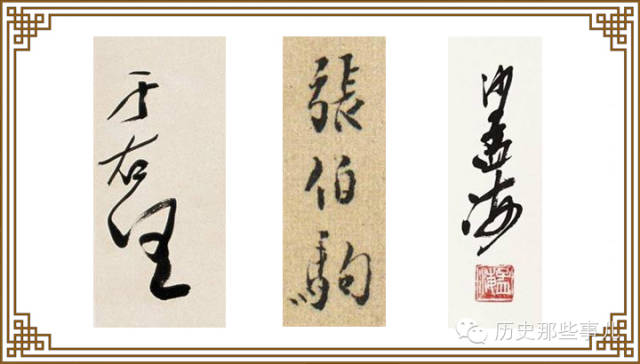 于右任
張伯駒
沙孟海
历史那些事儿